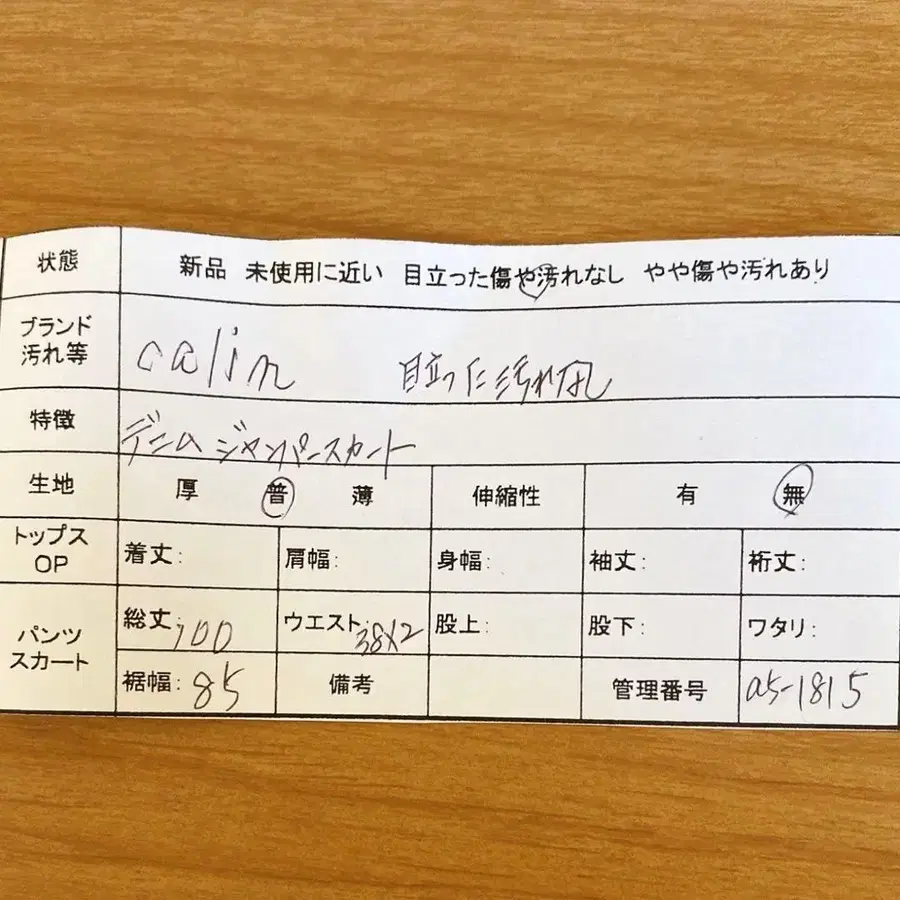 状態 新品 未使用に近い 目立った傷や汚れなし やや傷や汚れあり
ブランド
汚れ等 calin 目立った汚れなし
特徴 デニム ジャンパースカート
生地 厚 普 薄 伸縮性 有 無
トップス
OP 着丈: 肩幅: 身幅: 袖丈: 裄丈:
パンツ
スカート 総丈: 100 ウエスト: 38×2 股上: 股下: ワタリ:
裾幅: 85 備考 管理番号 a5-1815